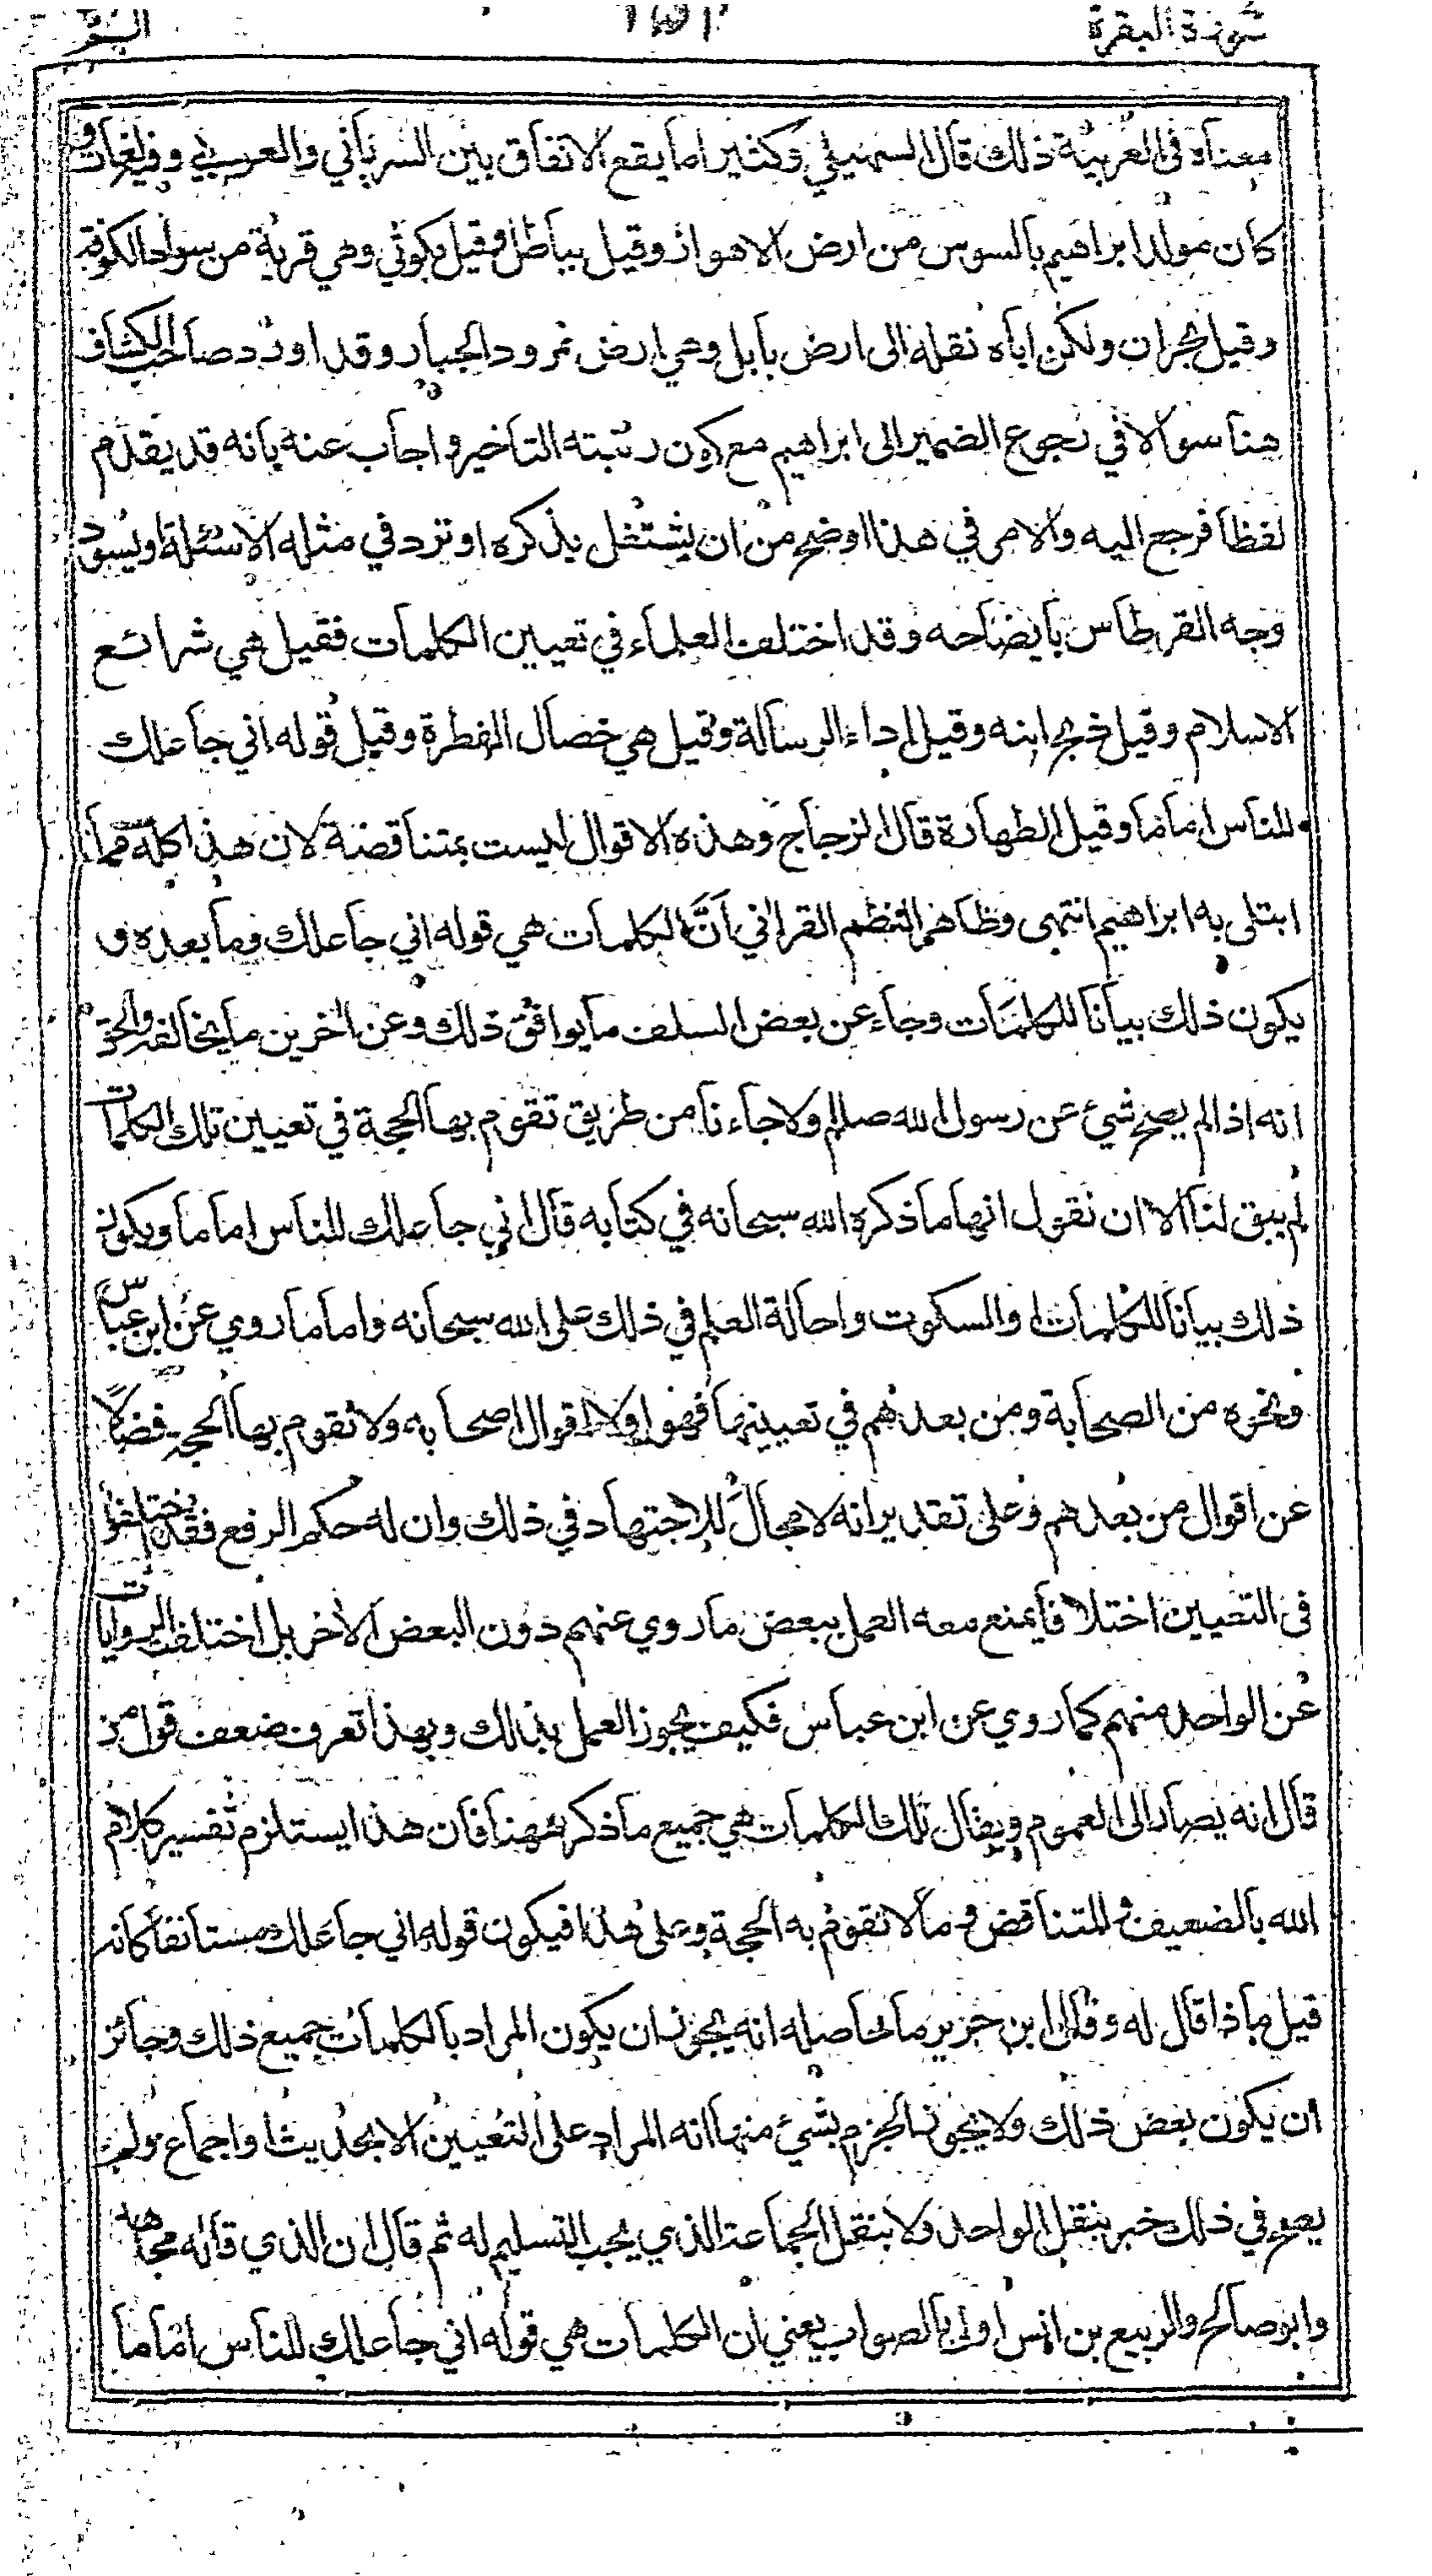 سورة البقرة
معناه في العربية ذلك قال السهيلي وكثيرا ما يقع الاتفاق بين السرياني والعربي وفيه لغات و
كان مولد ابراهيم بالسوس من ارض الاهواز وقيل ببابل وقيل بكوثي وهي قرية من سواد الكوفة
وقيل بحران ولكن اباه نقله الى ارض بابل وهي ارض نمرود الجبار وقد اورد صاحب الكشاف
هنا سوالا في رجوع الضمير الى ابراهيم مع كون رتبته التاخير واجاب عنه بانه قد يقدم
لفظا فرجع اليه والامر في هذا اوضح من ان يشتغل بذكره او ترد في مثله الاسئلة او يسود
وجه القرطاس بايضاحه وقد اختلف العلماء في تعيين الكلمات فقيل هي شرائع
الاسلام وقيل ذبح ابنه وقيل اداء الرسالة وقيل هي خصال الفطرة وقيل قوله اني جاعلك
للناس اماما وقيل الطهارة قال الزجاج وهذه الاقوال ليست بمتناقضة لان هذا كله مما
ابتلى به ابراهيم انتهى وظاهر النظم القراني أنَّ الكلمات هي قوله اني جاعلك وما بعده و
يكون ذلك بيانا للكلمات وجاء عن بعض السلف ما يوافق ذلك وعن اخرين ما يخالفه والحق
انه اذا لم يصح شيء عن رسول الله صللم ولا جاءنا من طريق تقوم بها الحجة في تعيين تلك الكلمات
لم يبق لنا الا ان نقول انها ما ذكره الله سبحانه في كتابه قال اني جاعلك للناس اماما ويكون
ذلك بيانا للكلمات او السكوت واحالة العلم في ذلك على الله سبحانه واما ما روي عن ابن عباس
ونحوه من الصحابة ومن بعدهم في تعيينها فهو اولا اقوال اصحابه ولا تقوم بها الحجة فضلًا
عن اقوال من بعدهم وعلى تقدير انه لا مجال للاجتهاد في ذلك وان له حكم الرفع فقد اختلفوا
في التعيين اختلافا يمنع معه العمل ببعض ما روي عنهم دون البعض الاخر بل اختلف الروايات
عن الواحد منهم كما روي عن ابن عباس فكيف يجوز العمل بذلك وبهذا تعرف ضعف قول من
قال انه يصار الى العموم ويقال تلك الكلمات هي جميع ما ذكر ههنا فان هذا يستلزم تفسير كلام
الله بالضعيف والمتناقض وما لا تقوم به الحجة وعلى هذا فيكون قوله اني جاعلك مستانفا كانه
قيل ماذا قال له وقال ابن جرير ما حاصله انه يجوز ان يكون المراد بالكلمات جميع ذلك وجائز
ان يكون بعض ذلك ولا يجوز الجزم بشيء منها انه المراد على التعيين الا بحديث او اجماع ولم
يصح في ذلك خبر بنقل الواحد ولا بنقل الجماعة الذي يجب التسليم له ثم قال ان الذي قاله مجاهد
وابو صالح والربيع بن انس اولى بالصواب يعني ان الكلمات هي قوله اني جاعلك للناس اماما